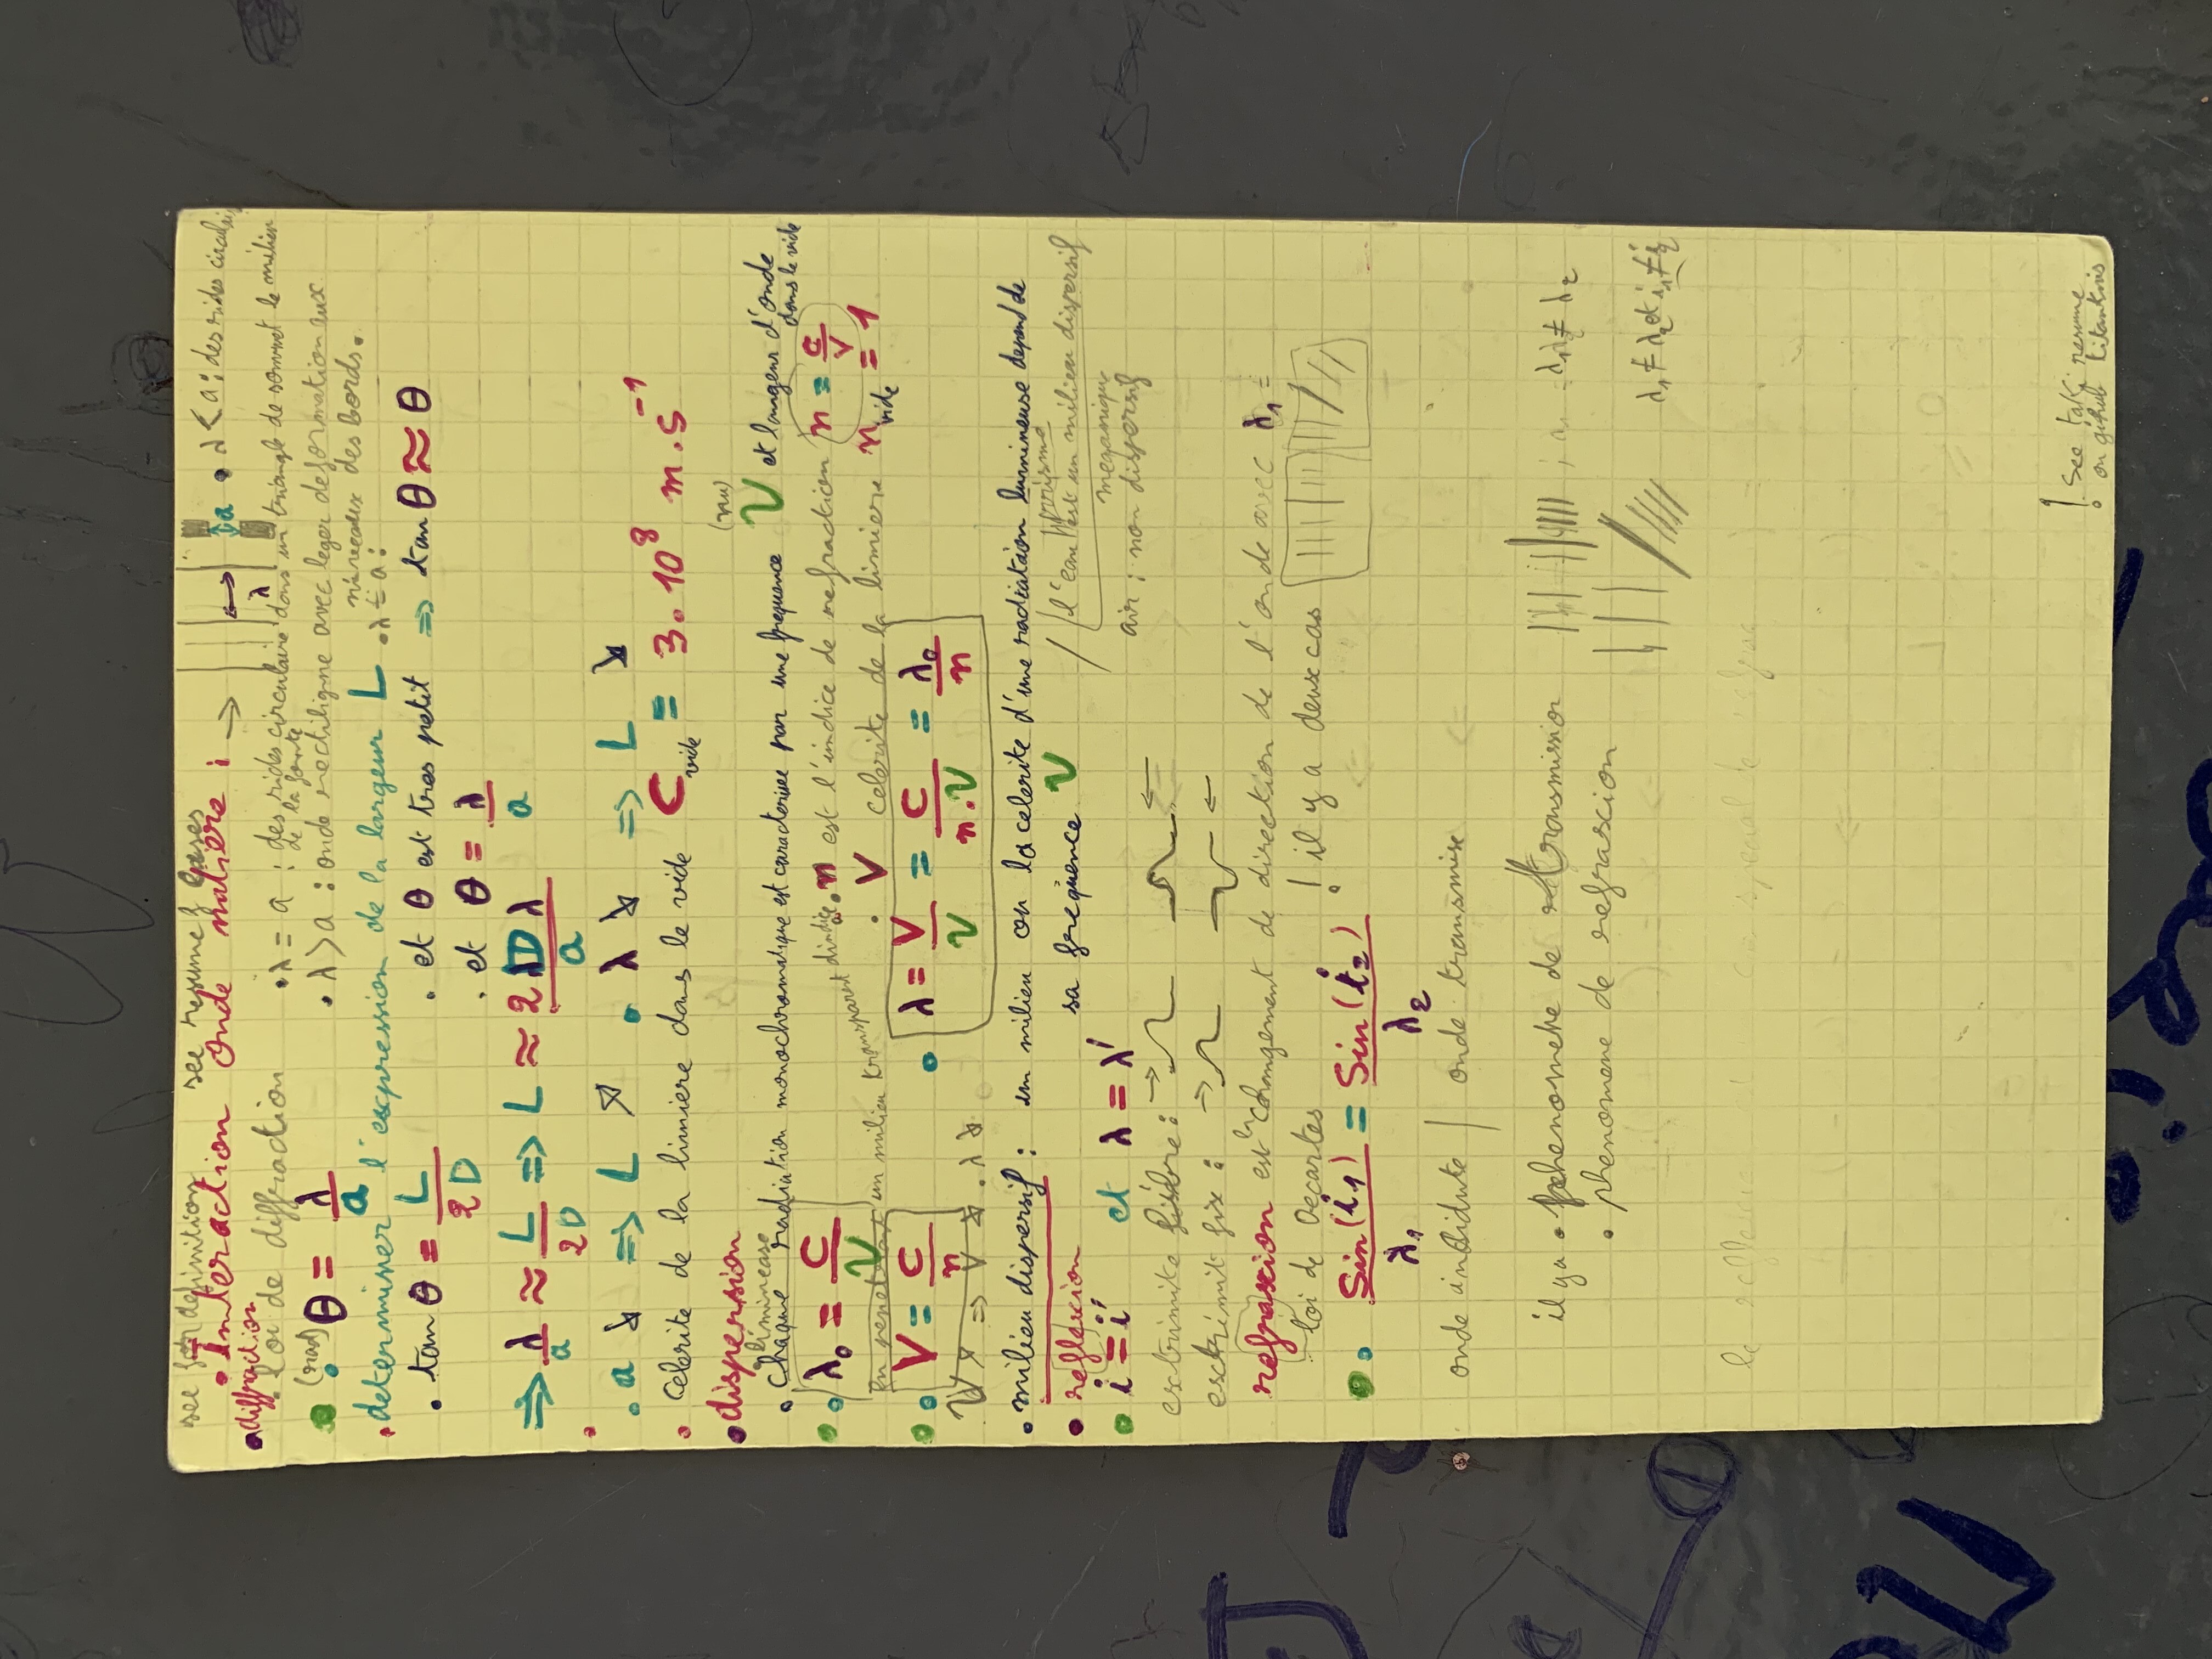 see for definition see resume of eases
• Interaction onde matiere : → λ a • λ < a : des rides circulai
• diffraction
• loi de diffraction • λ = a : des rides circulaire dans un triangle de sommet le milieu
de la fonte
(rad) θ = λ/a • λ > a : onde rectiligne avec leger deformation aux
niveaux des bords.
• determiner l'expression de la largeur L • λ ≤ a :
• tan θ = L/2D • et θ est tres petit ⇒ tan θ ≈ θ
• et θ = λ/a
⇒ λ/a ≈ L/2D ⇒ L ≈ 2Dλ/a
• a ↘ ⇒ L ↗ • λ ↘ ⇒ L ↘
• celerite de la limiere dans le vide C vide = 3.10⁸ m.s⁻¹
• dispersion
(nu)
• chaque radiation limineuse monochromatique est caracterisee par une frequence ν et longeur d'onde
dans le vide
• λ₀ = C/ν • n est l'indice de refraction n = C/V
en penetrant un milieu transparent d'indice • V celerite de la limiere n vide = 1
• V = C/n • λ = V/ν = C/n.ν = λ₀/n
ν ↗ ⇒ V ↘ . λ ↘
• milieu dispersif : un milieu ou la celerite d'une radiation lumineuse depend de
• reflexion sa frequence ν / l'eau prisme est un milieu dispersif
meqanique
• i = i' et λ = λ' air : non dispersif
extrimite libre : → ←
extrimit fix : → ←
refraxion est le changement de direction de l'onde avec λ₁ =
loi de Decartes ! il y a deux cas
• Sin(i₁)/λ₁ = Sin(i₂)/λ₂
onde incidute | onde transmise
il ya • phenomene de transmission λ₁ ≠ λ₂
• phenomene de refraxion λ₁ ≠ λ₂ et i₁ ≠ i₂
special de
! See taki resume
on github titanknis